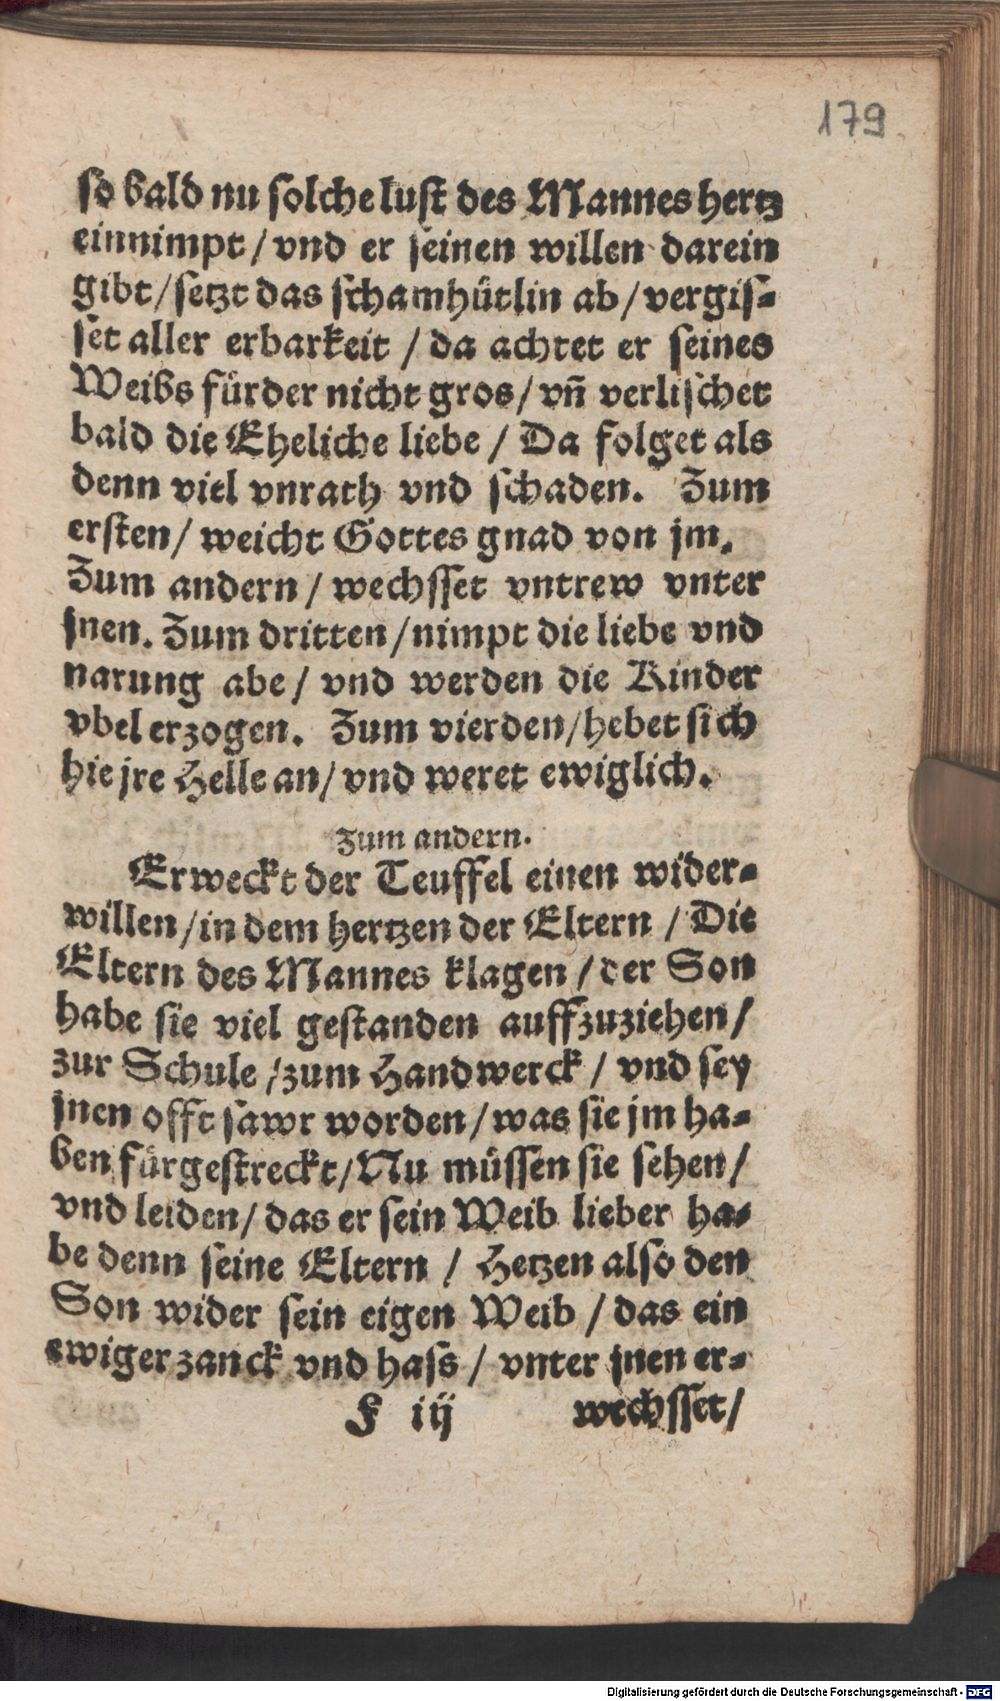 179
so bald nu solche lust des Mannes hertz
einnimpt / vnd er seinen willen darein
gibt / setzt das schamhütlin ab / vergis-
set aller erbarkeit / da achtet er seines
Weibs fürder nicht gros / vñ verlischet
bald die Eheliche liebe / Da folget als
denn viel vnrath vnd schaden. Zum
ersten / weicht Gottes gnad von jm.
Zum andern / wechsset vntrew vnter
jnen. Zum dritten / nimpt die liebe vnd
narung abe / vnd werden die Kinder
vbel erzogen. Zum vierden / hebet sich
hie jre Helle an / vnd weret ewiglich.
Zum andern.
Erweckt der Teuffel einen wider-
willen / in dem hertzen der Eltern / Die
Eltern des Mannes klagen / der Son
habe sie viel gestanden auffzuziehen /
zur Schule / zum Handwerck / vnd sey
jnen offt sawr worden / was sie jm ha-
ben fürgestreckt / Nu müssen sie sehen /
vnd leiden / das er sein Weib lieber ha-
be denn seine Eltern / Hetzen also den
Son wider sein eigen Weib / das ein
ewiger zanck vnd hass / vnter jnen er-
F iij wechsset /
Digitalisierung gefördert durch die Deutsche Forschungsgemeinschaft - DFG